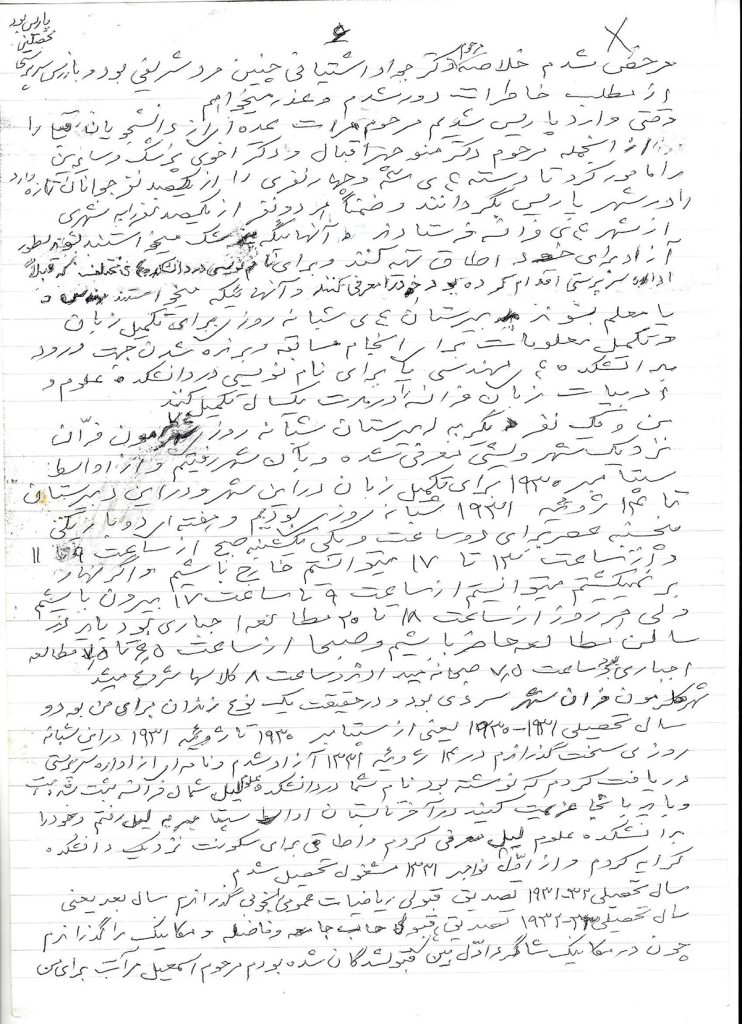 ۶
پاریس بود
مرخص شدم خلاصه مرحوم دکتر جواد آشتیانی چنین مرد شریفی بود و بازرس سرپرستی محصلین
از مطلب خاطرات دور شدم و عذر میخواهم
وقتی وارد پاریس شدیم مرحوم مرآت عده‌ای از دانشجویان قبل را
از آنجمله مرحوم دکتر منوچهر اقبال و دکتر اخوی پزشک و سایرین
را مأمور کرد تا دسته های سه و چهار نفری را از یکصد نفر جوانان تازه وارد
را در شهر پاریس بگردانند و ضمناً هر دو نفر از یکصد نفر را به شهری
از شهر های فرانسه فرستادند آنهائیکه پزشک میخواستند بشوند بطور
آزاد برای خود اطاق تهیه کنند و برای نام نویسی در دانشکده های مختلف که قبلاً
اداره سرپرستی اقدام کرده بود خود را معرفی کنند و آنهائیکه میخواستند مهندس و
یا معلم بشوند به دبیرستان های شبانه روزی برای تکمیل زبان
و تکمیل معلومات برای انجام مسابقه و برنده شدن جهت ورود
بدانشکده های مهندسی یا برای نام نویسی در دانشکده علوم و
ادبیات زبان فرانسه را در مدت یکسال تکمیل کنند
من و یک نفر دیگر به دبیرستان شبانه روزی شهر مون فران
نزدیک شهر ویشی معرفی شده و بآن شهر رفتیم و از اواسط
سپتامبر ۱۹۳۰ برای تکمیل زبان در این شهر و در این دبیرستان
تا ۱۴ ژوئیه ۱۹۳۱ شبانه روزی بودیم و هفته‌ای دو بار یکی
پنجشنبه عصر برای دو ساعت و یکی یکشنبه صبح از ساعت ۹ تا ۱۱
و از ساعت ۱۳ تا ۱۷ میتوانستیم خارج باشیم و اگر نهار
بر نمیگشتیم میتوانستیم از ساعت ۹ تا ساعت ۱۷ بیرون باشیم
ولی هر روز از ساعت ۱۸ تا ۲۰ مطالعه اجباری بود باید در
سالن مطالعه حاضر باشیم و صبحها از ساعت ۶٫۵ تا ۷٫۵ مطالعه
اجباری بود ساعت ۷٫۵ صبحانه میدادند و ساعت ۸ کلاسها شروع میشد
شهر مون فران شهر سردی بود و در حقیقت یک نوع زندان برای من بود و
سال تحصیلی ۱۹۳۱-۱۹۳۰ یعنی از سپتامبر ۱۹۳۰ تا ژوئیه ۱۹۳۱ در این شبانه
روزی سخت گذراندم در ۱۴ ژوئیه ۱۹۳۱ آزاد شدم و نامه‌ای از اداره سرپرستی
دریافت کردم که نوشته بود نام شما در دانشکده علوم لیل شمال فرانسه ثبت شده است
و باید بآنجا عزیمت کنید در آخر تابستان اواسط سپتامبر به لیل رفتم و خود را
بدانشکده علوم لیل معرفی کردم و اطاقی برای سکونت نزدیک دانشکده
کرایه کردم و از اول نوامبر ۱۹۳۱ مشغول تحصیل شدم
سال تحصیلی ۳۲-۱۹۳۱ تصدیق قبولی ریاضیات عمومی گذراندم سال بعد یعنی
سال تحصیلی ۳۳-۱۹۳۲ تصدیق قبولی حساب جامعه و فاضله و مکانیک را گذراندم
چون در مکانیک شاگرد اول بین قبولشدگان شده بودم مرحوم اسمعیل مرآت برای من